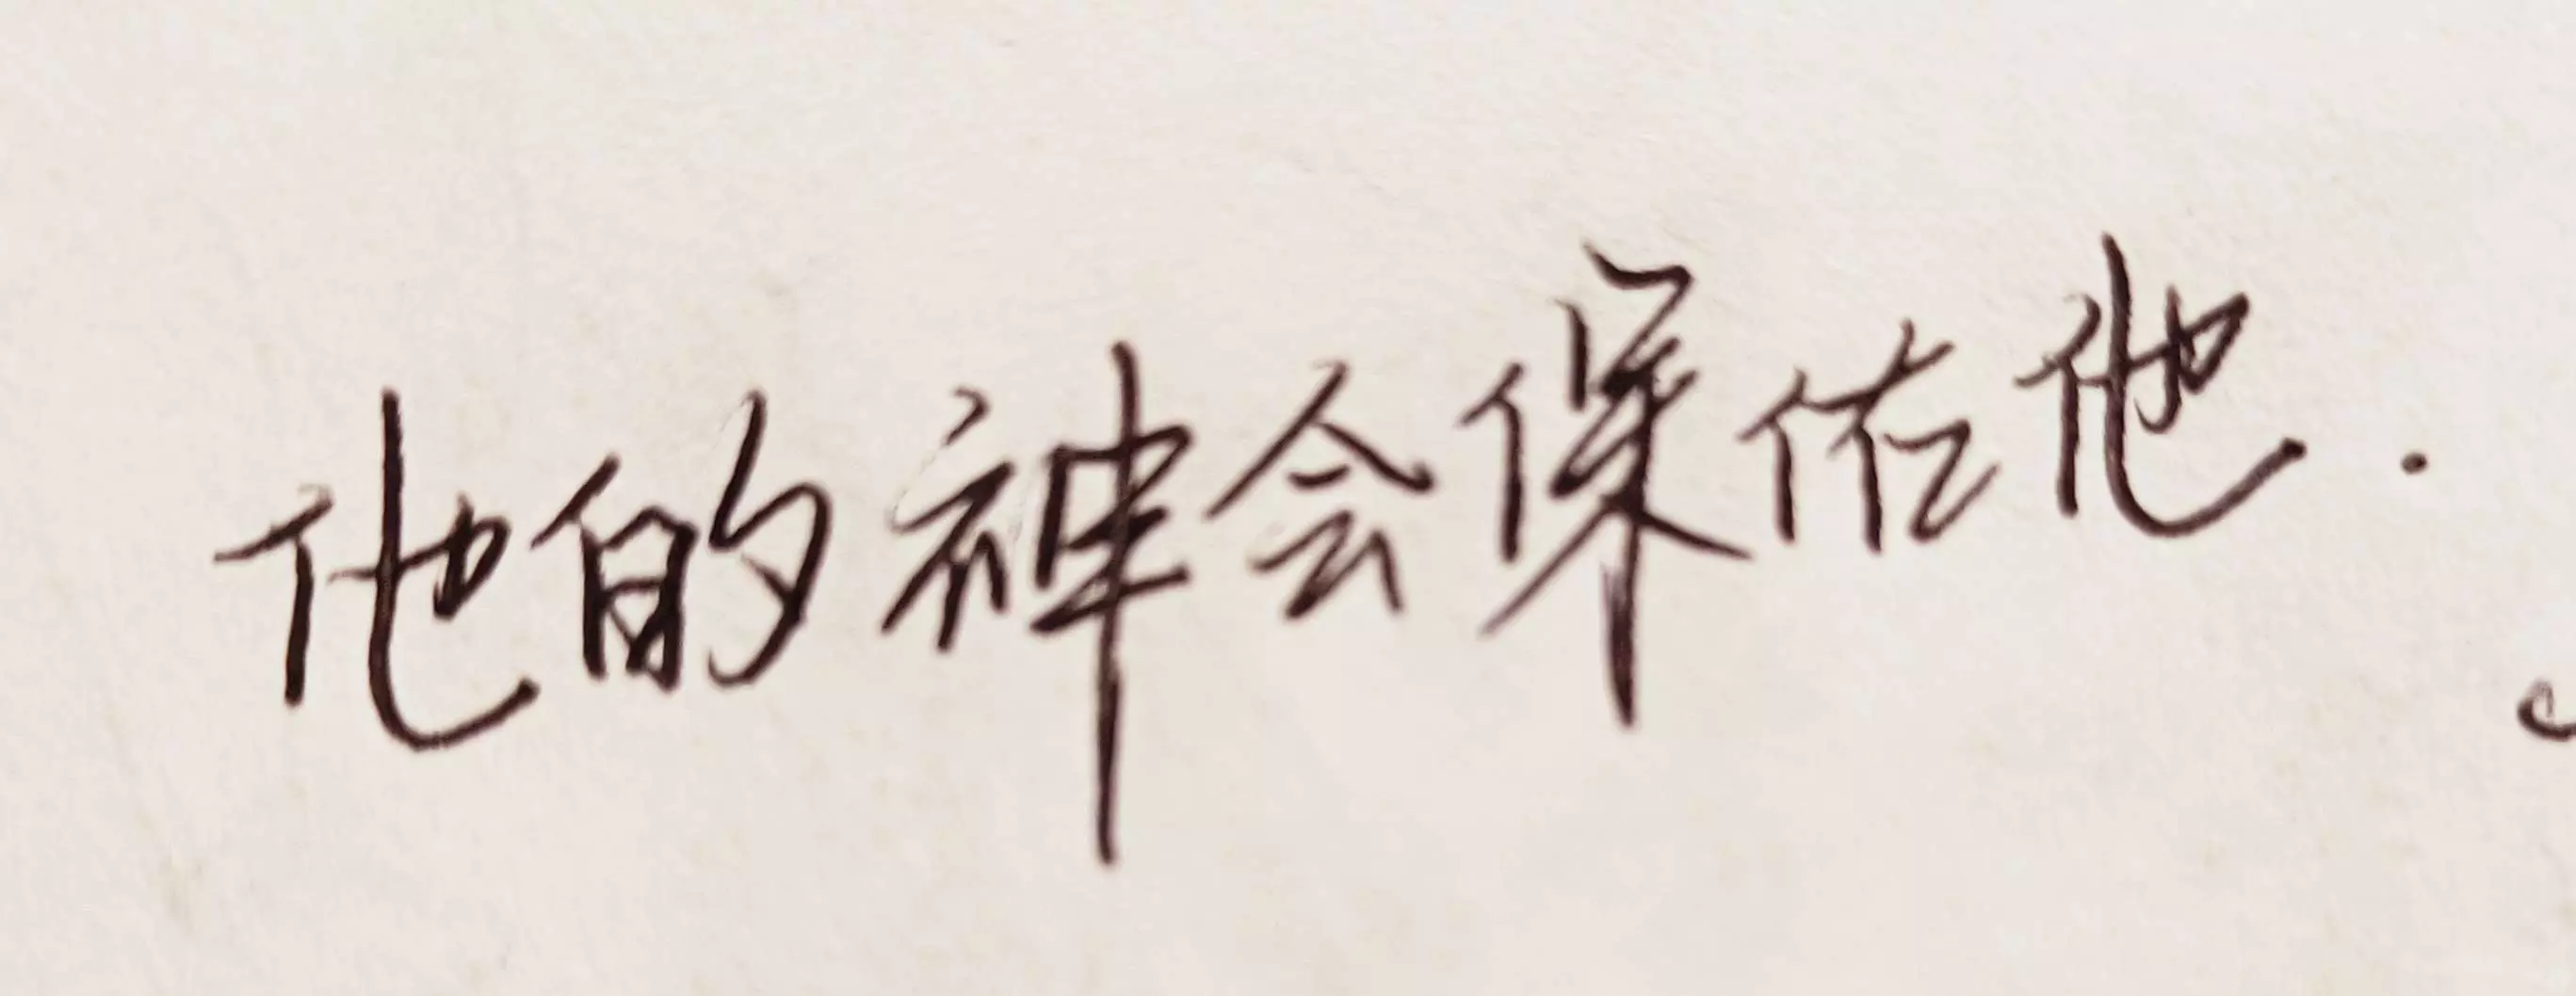 他的神会保佑他.